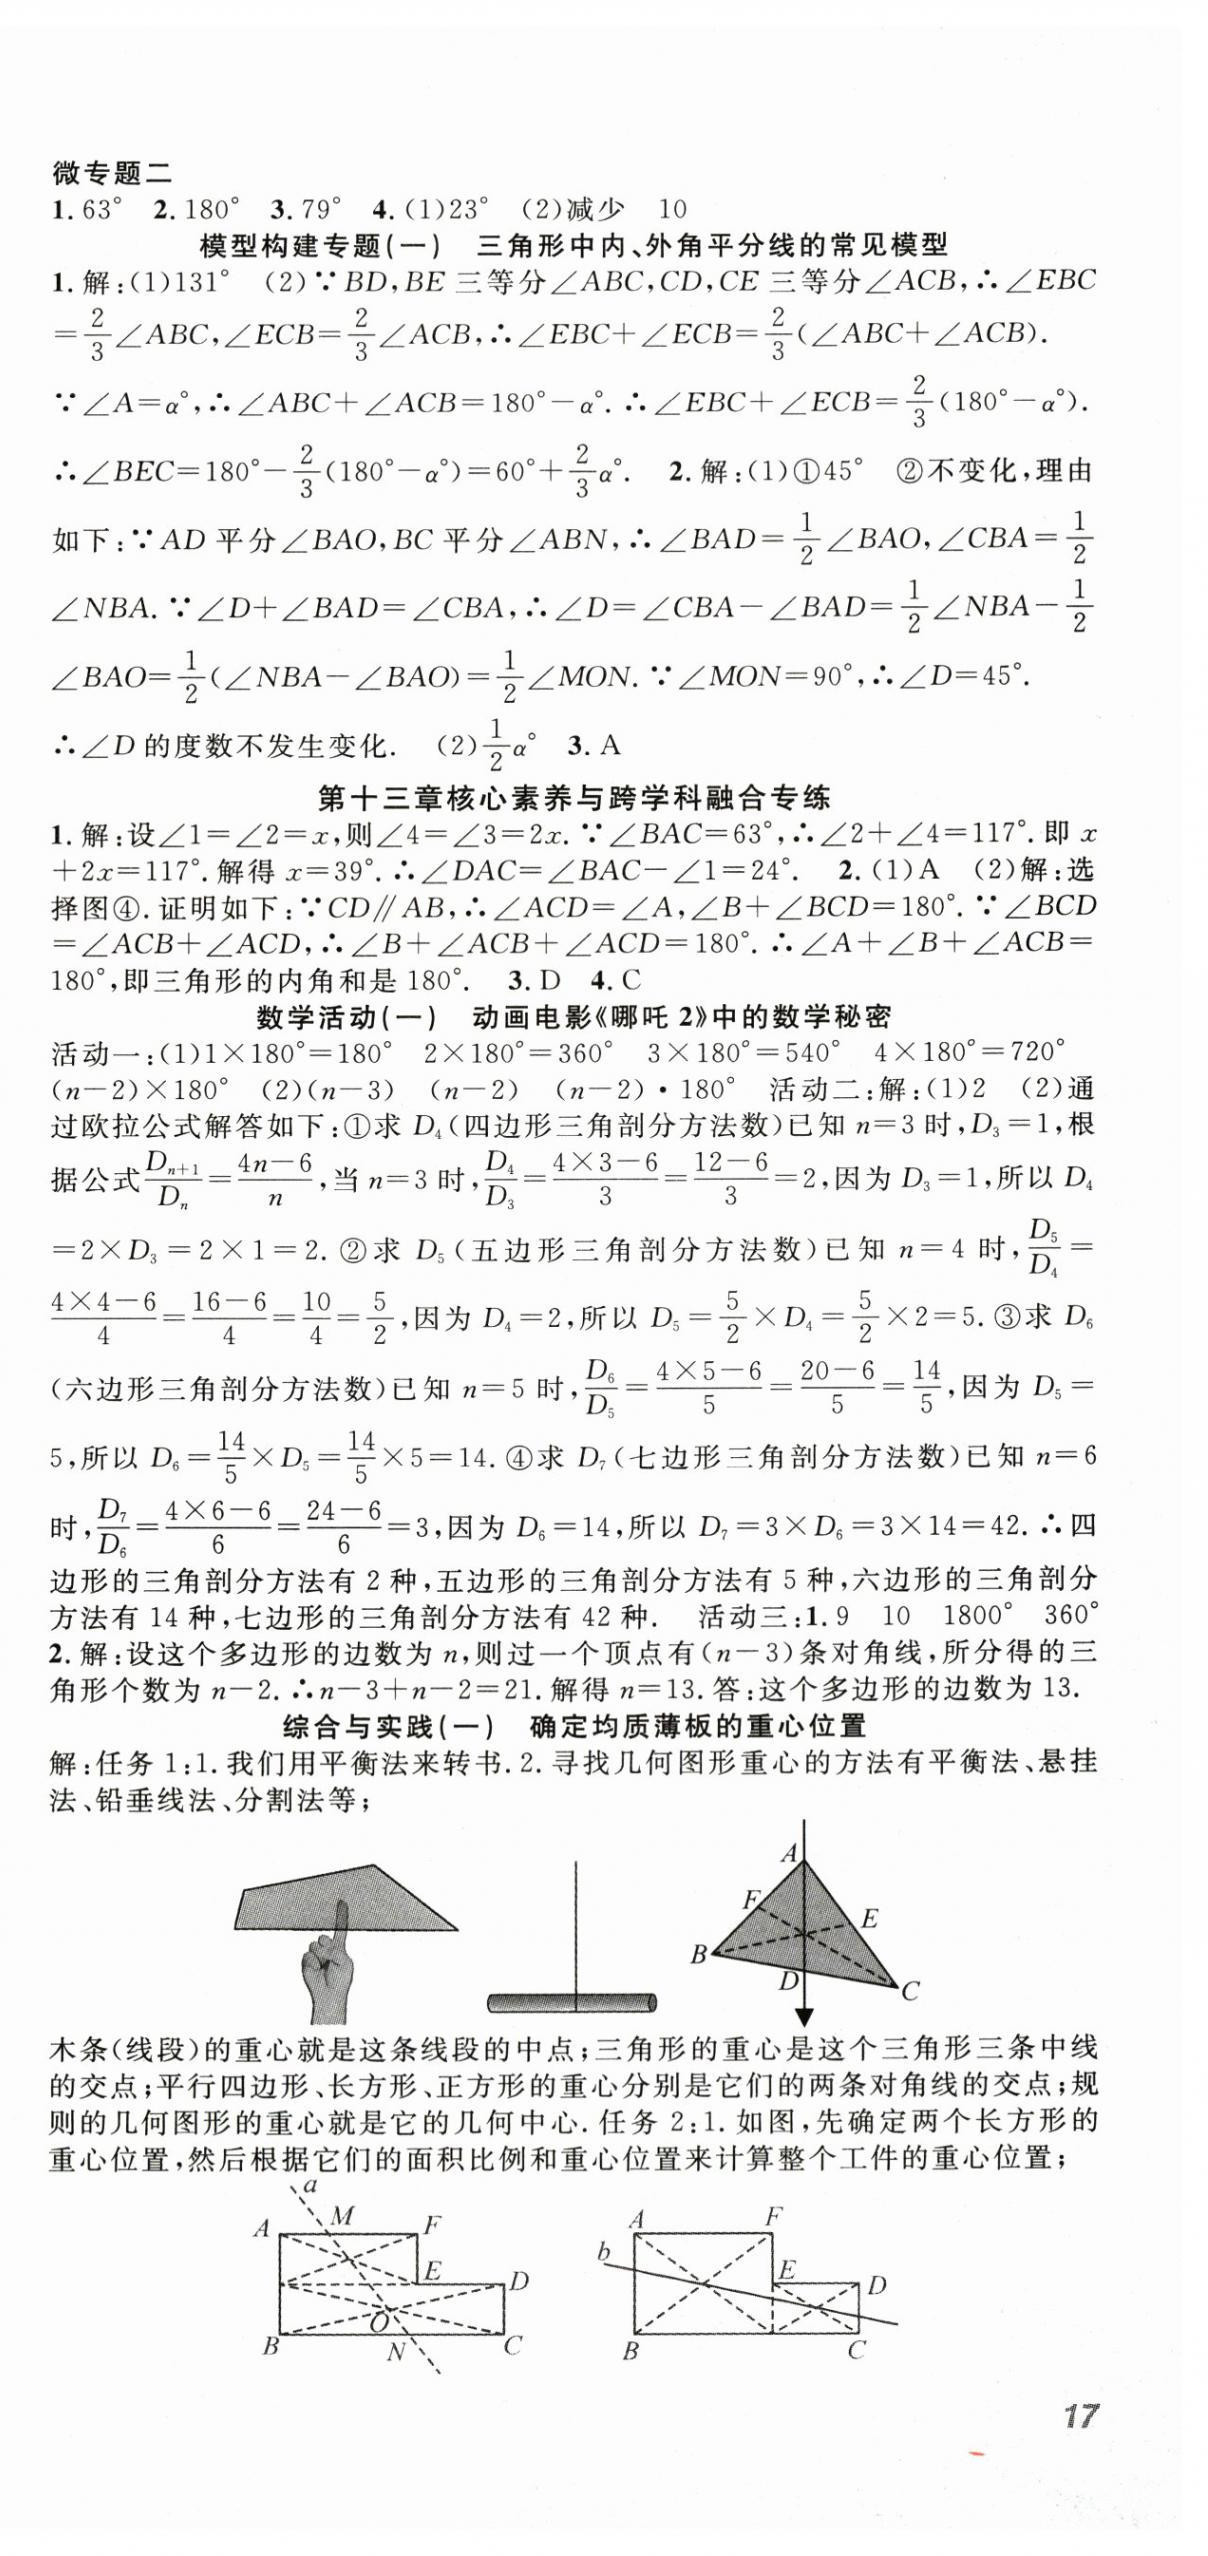 微专题二
1. 63°  2. 180°  3. 79°  4. (1)23°  (2)减少  10
模型构建专题(一)  三角形中内、外角平分线的常见模型
1. 解:(1)131°  (2)∵BD,BE 三等分∠ABC,CD,CE 三等分∠ACB,∴∠EBC
=2/3∠ABC,∠ECB=2/3∠ACB,∴∠EBC+∠ECB=2/3(∠ABC+∠ACB).
∵∠A=α°,∴∠ABC+∠ACB=180°-α°.∴∠EBC+∠ECB=2/3(180°-α°).
∴∠BEC=180°-2/3(180°-α°)=60°+2/3α°.  2. 解:(1)①45°  ②不变化,理由
如下:∵AD 平分∠BAO,BC 平分∠ABN,∴∠BAD=1/2∠BAO,∠CBA=1/2
∠NBA.∵∠D+∠BAD=∠CBA,∴∠D=∠CBA-∠BAD=1/2∠NBA-1/2
∠BAO=1/2(∠NBA-∠BAO)=1/2∠MON.∵∠MON=90°,∴∠D=45°.
∴∠D 的度数不发生变化.  (2)1/2α°  3. A
第十三章核心素养与跨学科融合专练
1. 解:设∠1=∠2=x,则∠4=∠3=2x.∵∠BAC=63°,∴∠2+∠4=117°.即 x
+2x=117°.解得 x=39°.∴∠DAC=∠BAC-∠1=24°.  2. (1)A  (2)解:选
择图④.证明如下:∵CD∥AB,∴∠ACD=∠A,∠B+∠BCD=180°.∵∠BCD
=∠ACB+∠ACD,∴∠B+∠ACB+∠ACD=180°.∴∠A+∠B+∠ACB=
180°,即三角形的内角和是 180°.  3. D  4. C
数学活动(一)  动画电影《哪吒 2》中的数学秘密
活动一:(1)1×180°=180°  2×180°=360°  3×180°=540°  4×180°=720°
(n-2)×180°  (2)(n-3)  (n-2)  (n-2)·180°  活动二:解:(1)2  (2)通
过欧拉公式解答如下:①求 D₄(四边形三角剖分方法数)已知 n=3 时,D₃=1,根
据公式Dₙ₊₁/Dₙ=(4n-6)/n,当 n=3 时,D₄/D₃=(4×3-6)/3=(12-6)/3=2,因为 D₃=1,所以 D₄
=2×D₃=2×1=2.②求 D₅(五边形三角剖分方法数)已知 n=4 时,D₅/D₄=
(4×4-6)/4=(16-6)/4=10/4=5/2,因为 D₄=2,所以 D₅=5/2×D₄=5/2×2=5.③求 D₆
(六边形三角剖分方法数)已知 n=5 时,D₆/D₅=(4×5-6)/5=(20-6)/5=14/5,因为 D₅=
5,所以 D₆=14/5×D₅=14/5×5=14.④求 D₇(七边形三角剖分方法数)已知 n=6
时,D₇/D₆=(4×6-6)/6=(24-6)/6=3,因为 D₆=14,所以 D₇=3×D₆=3×14=42.∴四
边形的三角剖分方法有 2 种,五边形的三角剖分方法有 5 种,六边形的三角剖分
方法有 14 种,七边形的三角剖分方法有 42 种.  活动三:1. 9  10  1800°  360°
2. 解:设这个多边形的边数为 n,则过一个顶点有(n-3)条对角线,所分得的三
角形个数为 n-2.∴n-3+n-2=21.解得 n=13.答:这个多边形的边数为 13.
综合与实践(一)  确定均质薄板的重心位置
解:任务 1:1. 我们用平衡法来转书.2. 寻找几何图形重心的方法有平衡法、悬挂
法、铅垂线法、分割法等;
A
F
E
B
D
C
木条(线段)的重心就是这条线段的中点;三角形的重心是这个三角形三条中线
的交点;平行四边形、长方形、正方形的重心分别是它们的两条对角线的交点;规
则的几何图形的重心就是它的几何中心.任务 2:1. 如图,先确定两个长方形的
重心位置,然后根据它们的面积比例和重心位置来计算整个工件的重心位置;
a
A M F
E
D
O
B N C
A F
b
E
D
B C
17